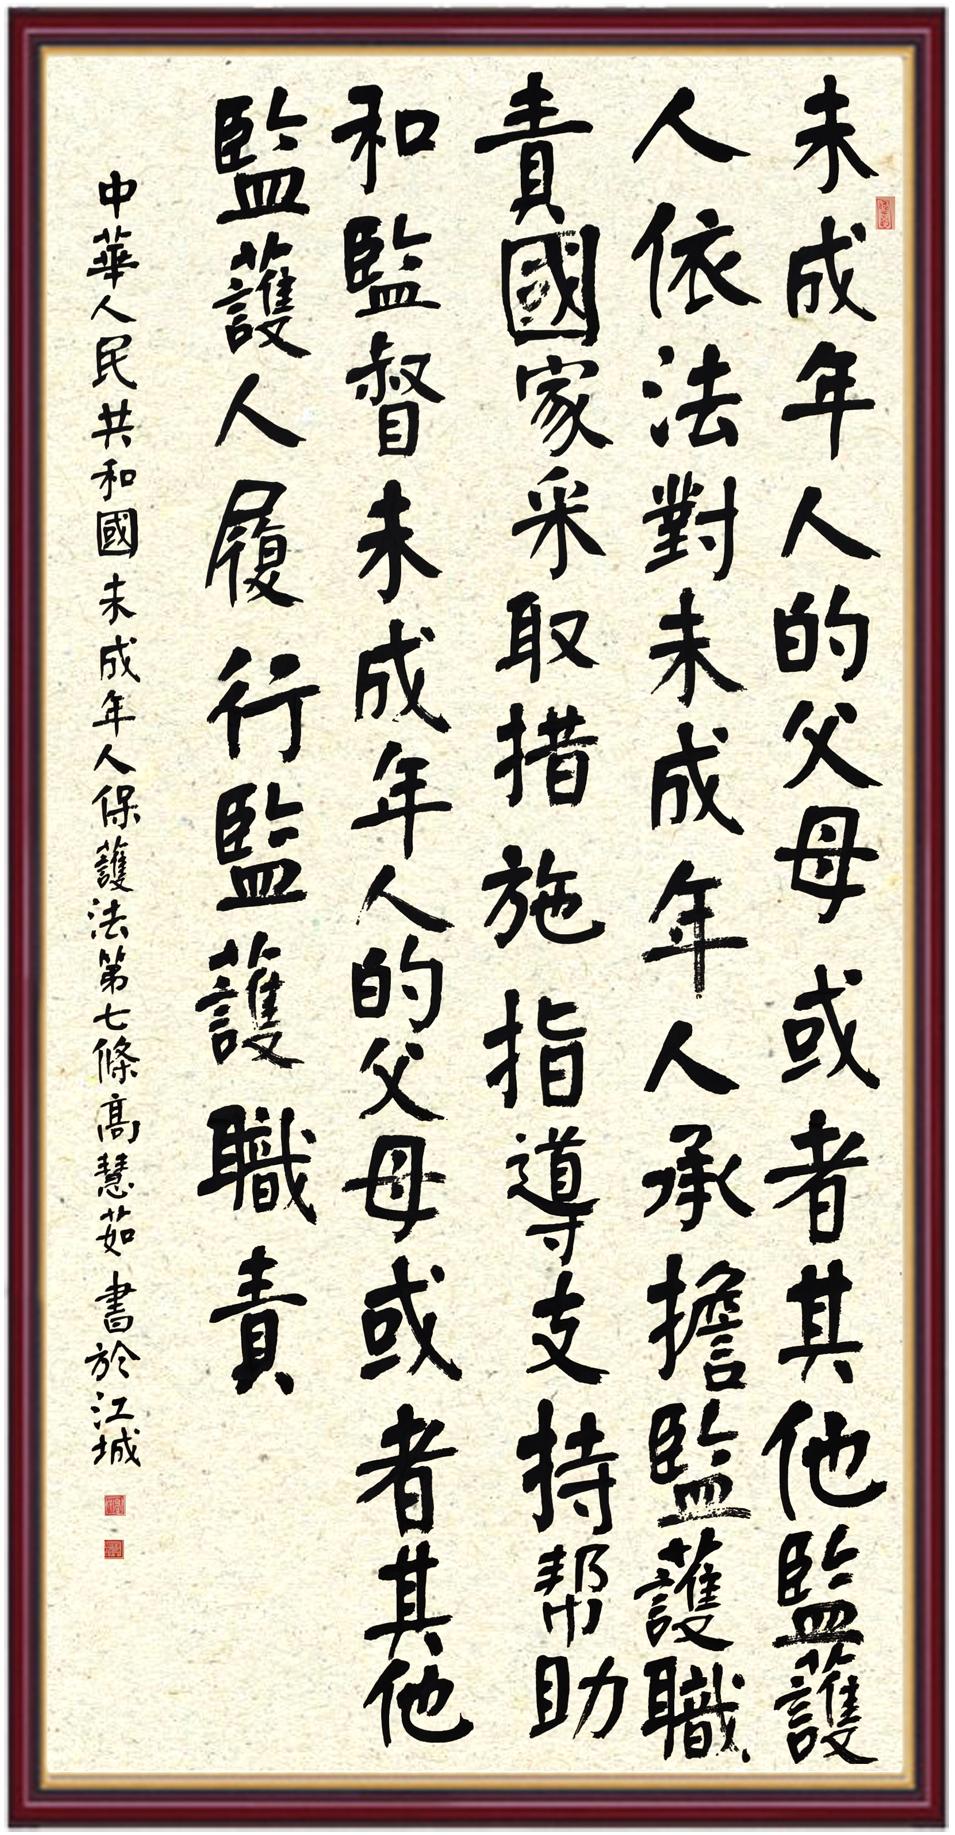 未成年人的父母或者其他監護
人依法對未成年人承擔監護職
責國家采取措施指導支持帮助
和監督未成年人的父母或者其他
監護人履行監護職責
中華人民共和國未成年人保護法第七條高慧茹書於江城